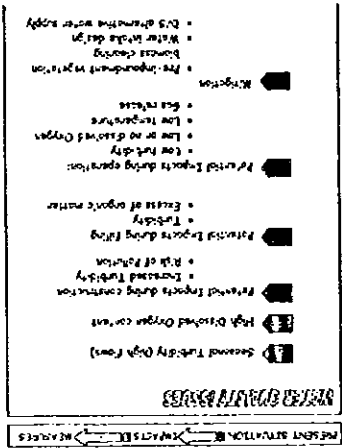 PRESENT SITUATION IMPACTS MEASURES
WATER QUALITY ISSUES
Seasonal Turbidity (high flows)
High Dissolved Oxygen content
Potential Impacts during construction
• Increased Turbidity
• Risk of Pollution
Potential Impacts during filling
• Turbidity
• Excess of organic matter
Potential Impacts during operation:
• Low turbidity
• Low or no dissolved Oxygen
• Low temperature
• Gas release
Mitigation
• Pre-impoundment vegetation
biomass clearing
• Water intake design
• D/S alternative water supply